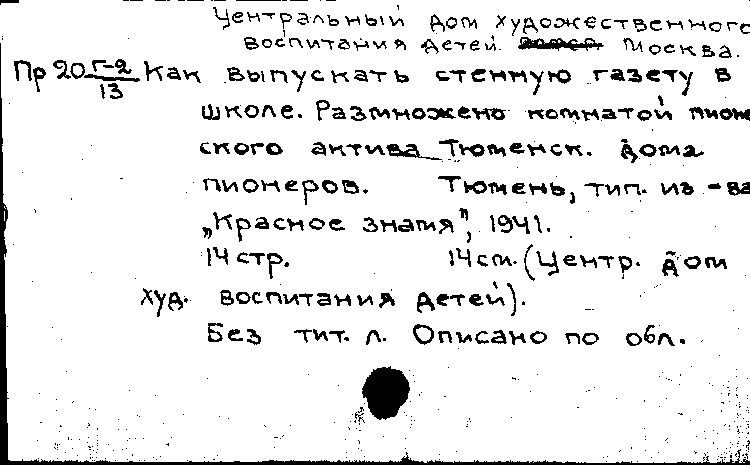 Центральный дом художественного
воспитания детей. Москва.
Пр 20 Г-2/13 Как выпускать стенную газету в
школе. Размножено комнатой пионе
ского актива Тюменск. дома
пионеров. Тюмень, тип. из-ва
„Красное знамя", 1941.
14 стр. 14 см. (Центр. дом
худ. воспитания детей).
Без тит. л. Описано по обл.